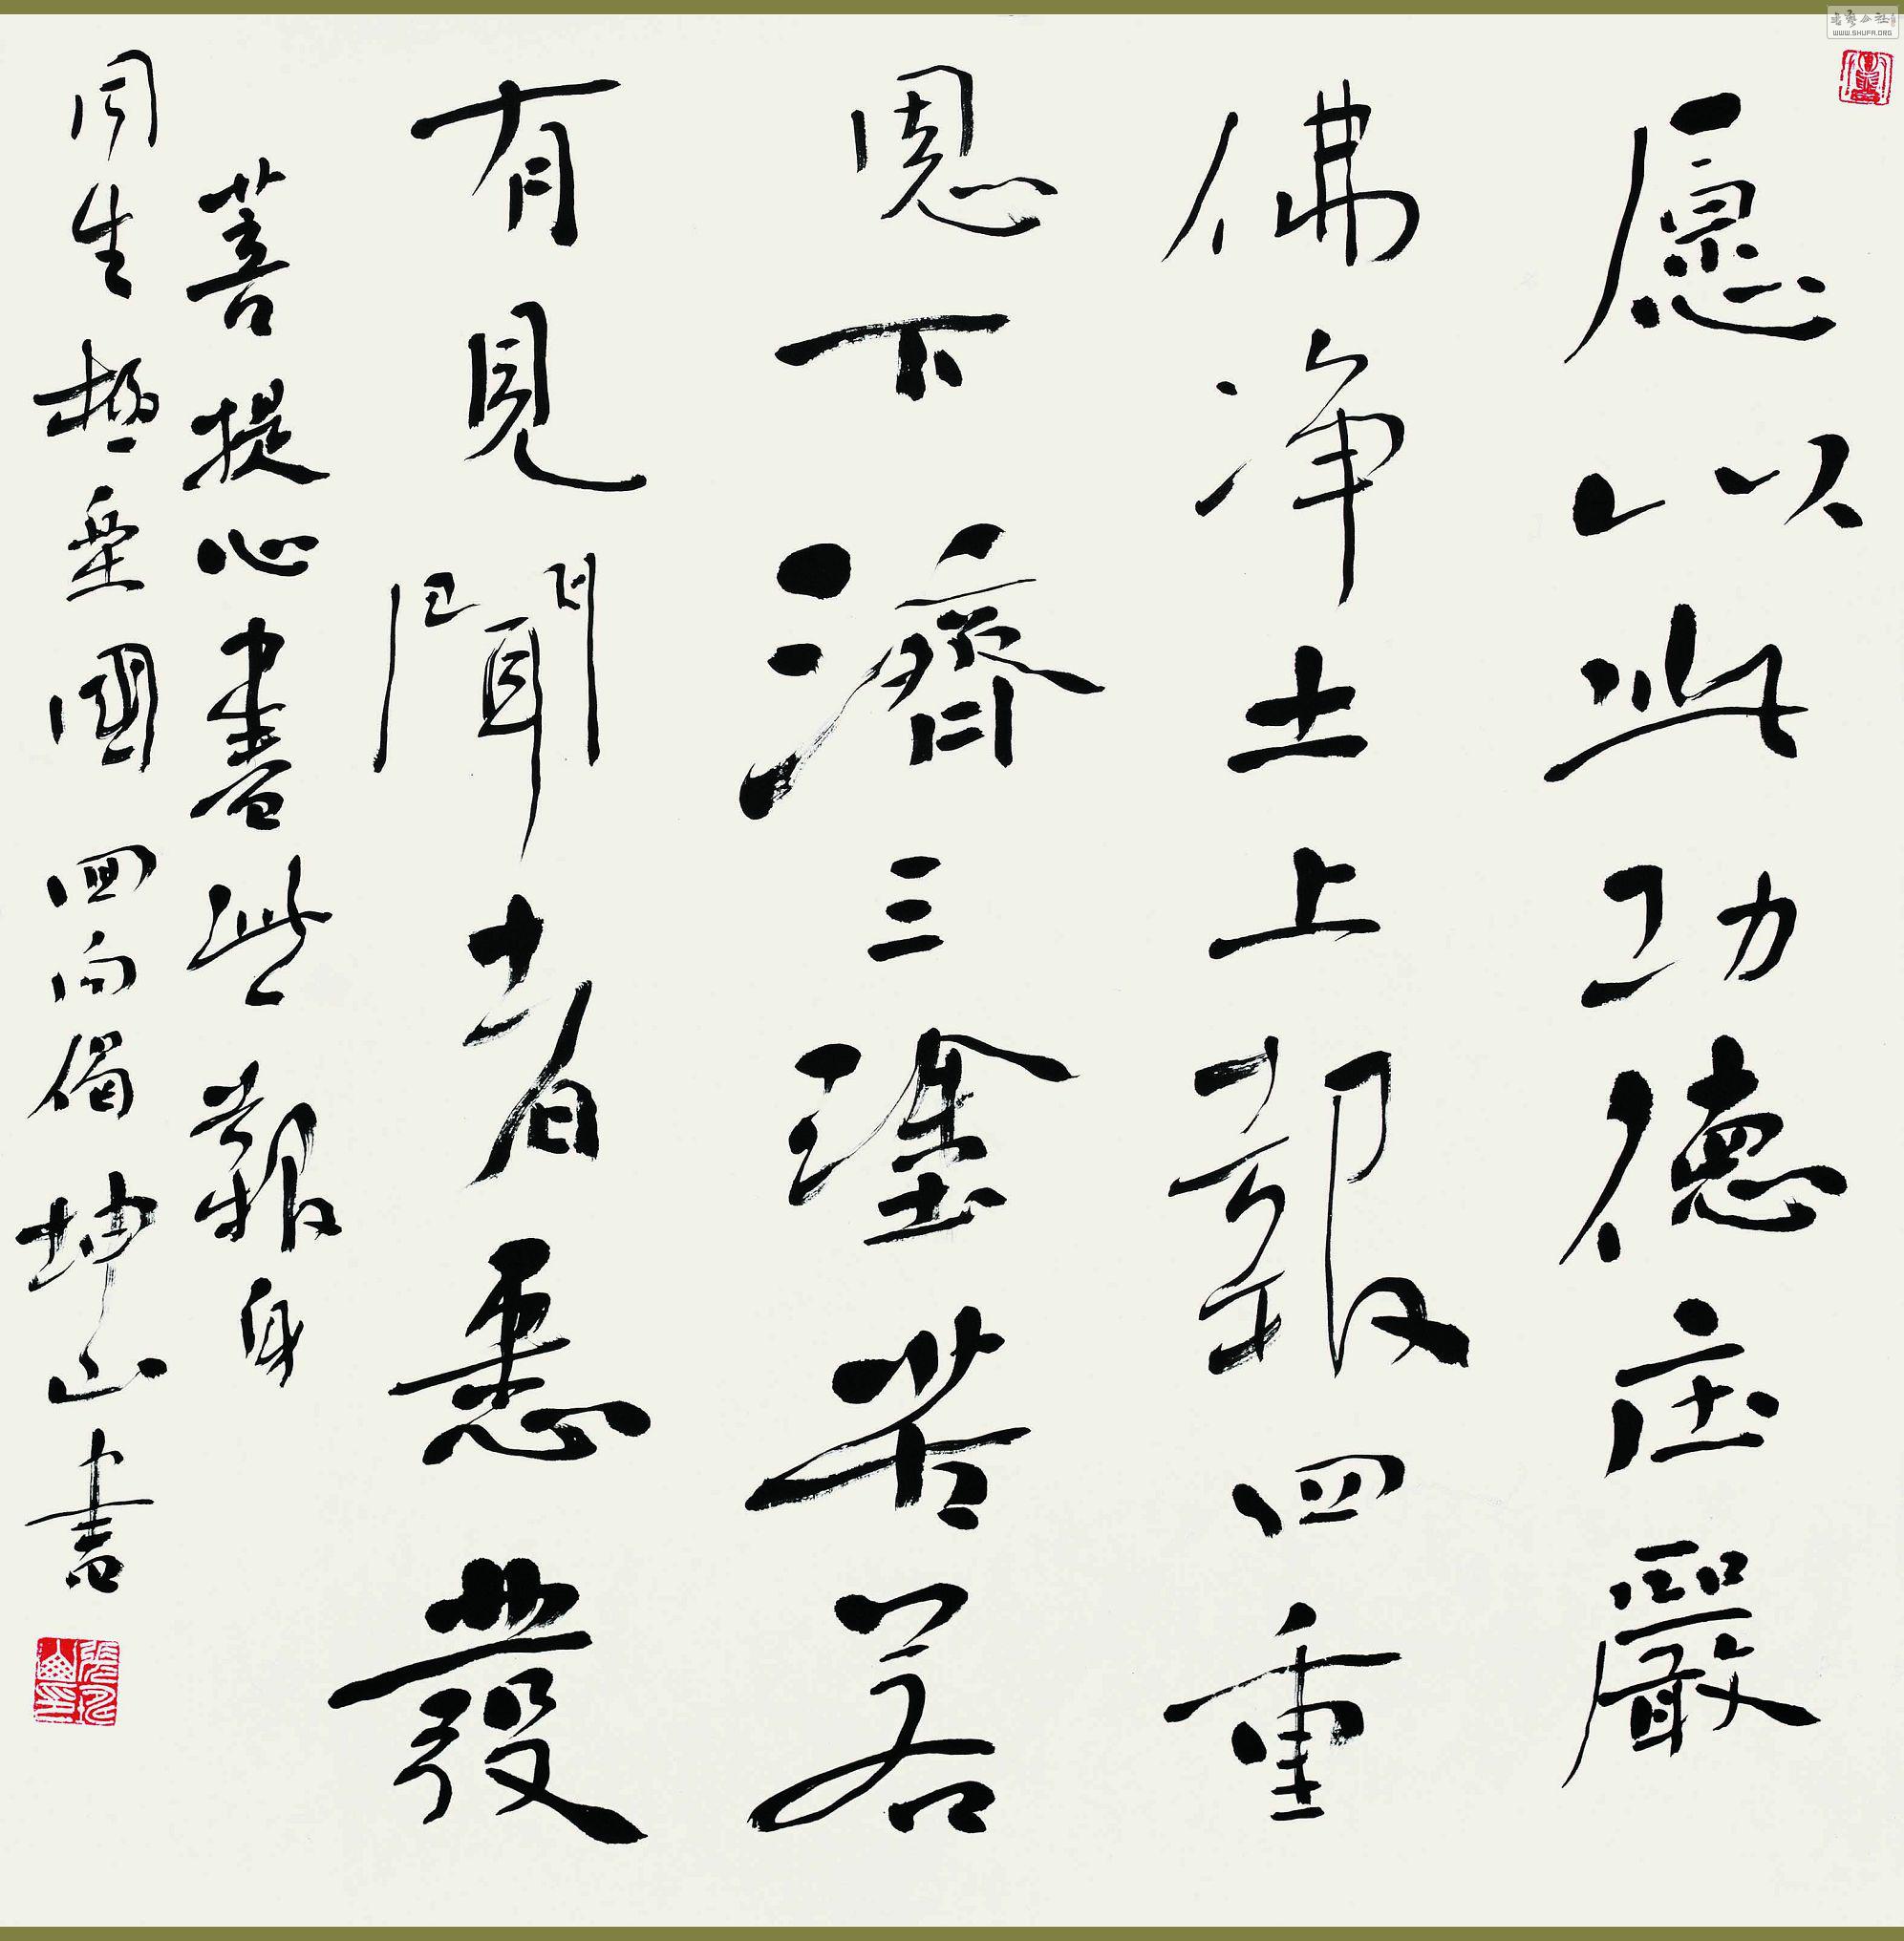 愿以此功德庄嚴
佛净土上報四重
恩下濟三塗苦若
有見聞者悉發
菩提心盡此報身
同生極樂國 回向偈 坤山書
張坤山印
书艺公社
WWW.SHUFA.ORG